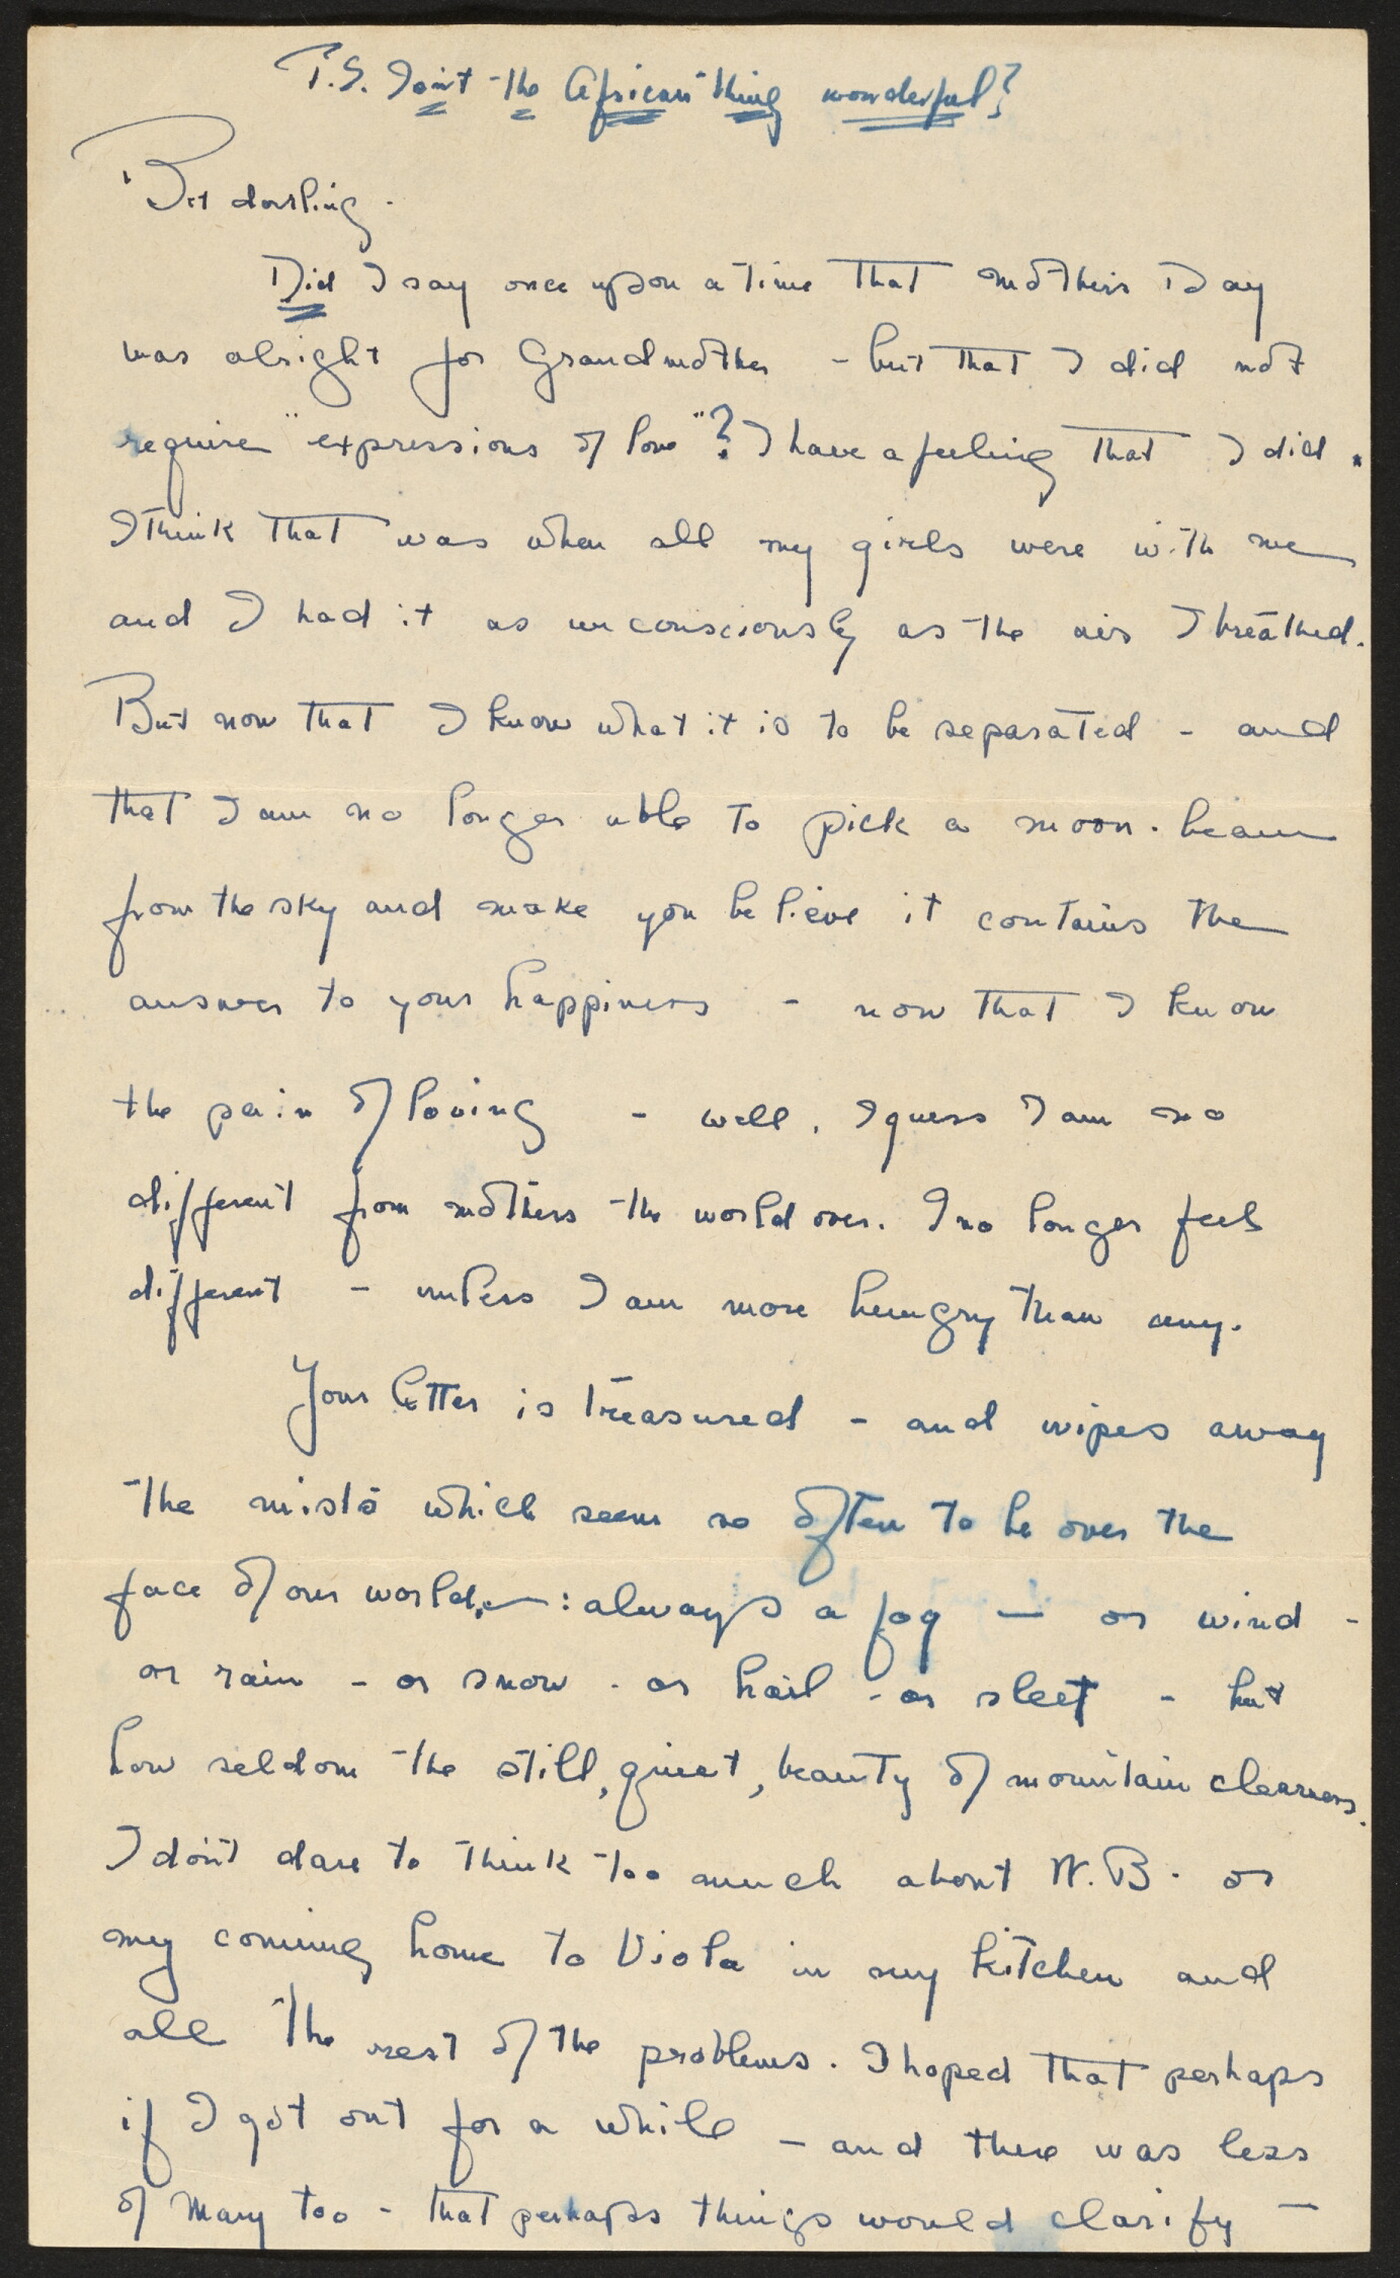 P.S. Isn't the African thing wonderful?
Bit darling -
Did I say once upon a time that mothers Day
was alright for Grandmother - but that I did not
require "expressions of love"? I have a feeling that I did.
I think that was when all my girls were with me
and I had it as unconsciously as the air I breathed.
But now that I know what it is to be separated - and
that I am no longer able to pick a moon-beam
from the sky and make you believe it contains the
answer to your happiness - now that I know
the pain of loving - well, I guess I am no
different from mothers the world over. I no longer feel
different - unless I am more hungry than any.
Your letter is treasured - and wipes away
the mists which seem so often to be over the
face of our world. - : always a fog - or wind -
or rain - or snow - or hail - or sleet - but
how seldom the still, quiet, beauty of mountain clearness.
I don't dare to think too much about W.B. or
my coming home to Viola in my kitchen and
all the rest of the problems. I hoped that perhaps
if I got out for a while - and there was less
of Mary too - that perhaps things would clarify -